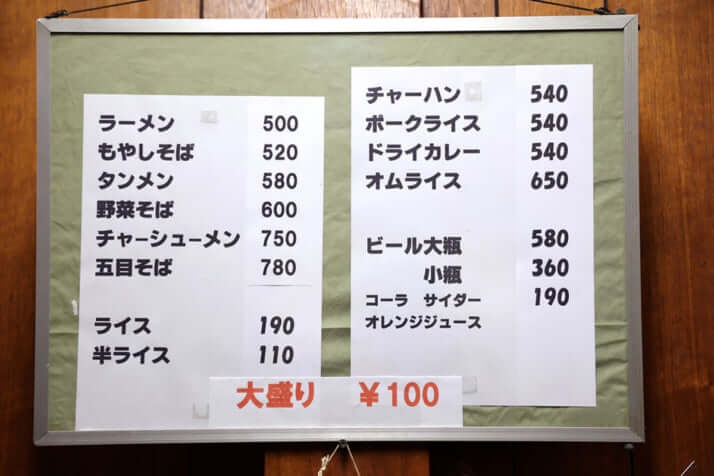 ラーメン 500
もやしそば 520
タンメン 580
野菜そば 600
チャーシューメン 750
五目そば 780
ライス 190
半ライス 110
チャーハン 540
ポークライス 540
ドライカレー 540
オムライス 650
ビール大瓶 580
小瓶 360
コーラ サイダー 190
オレンジジュース
大盛り ¥100